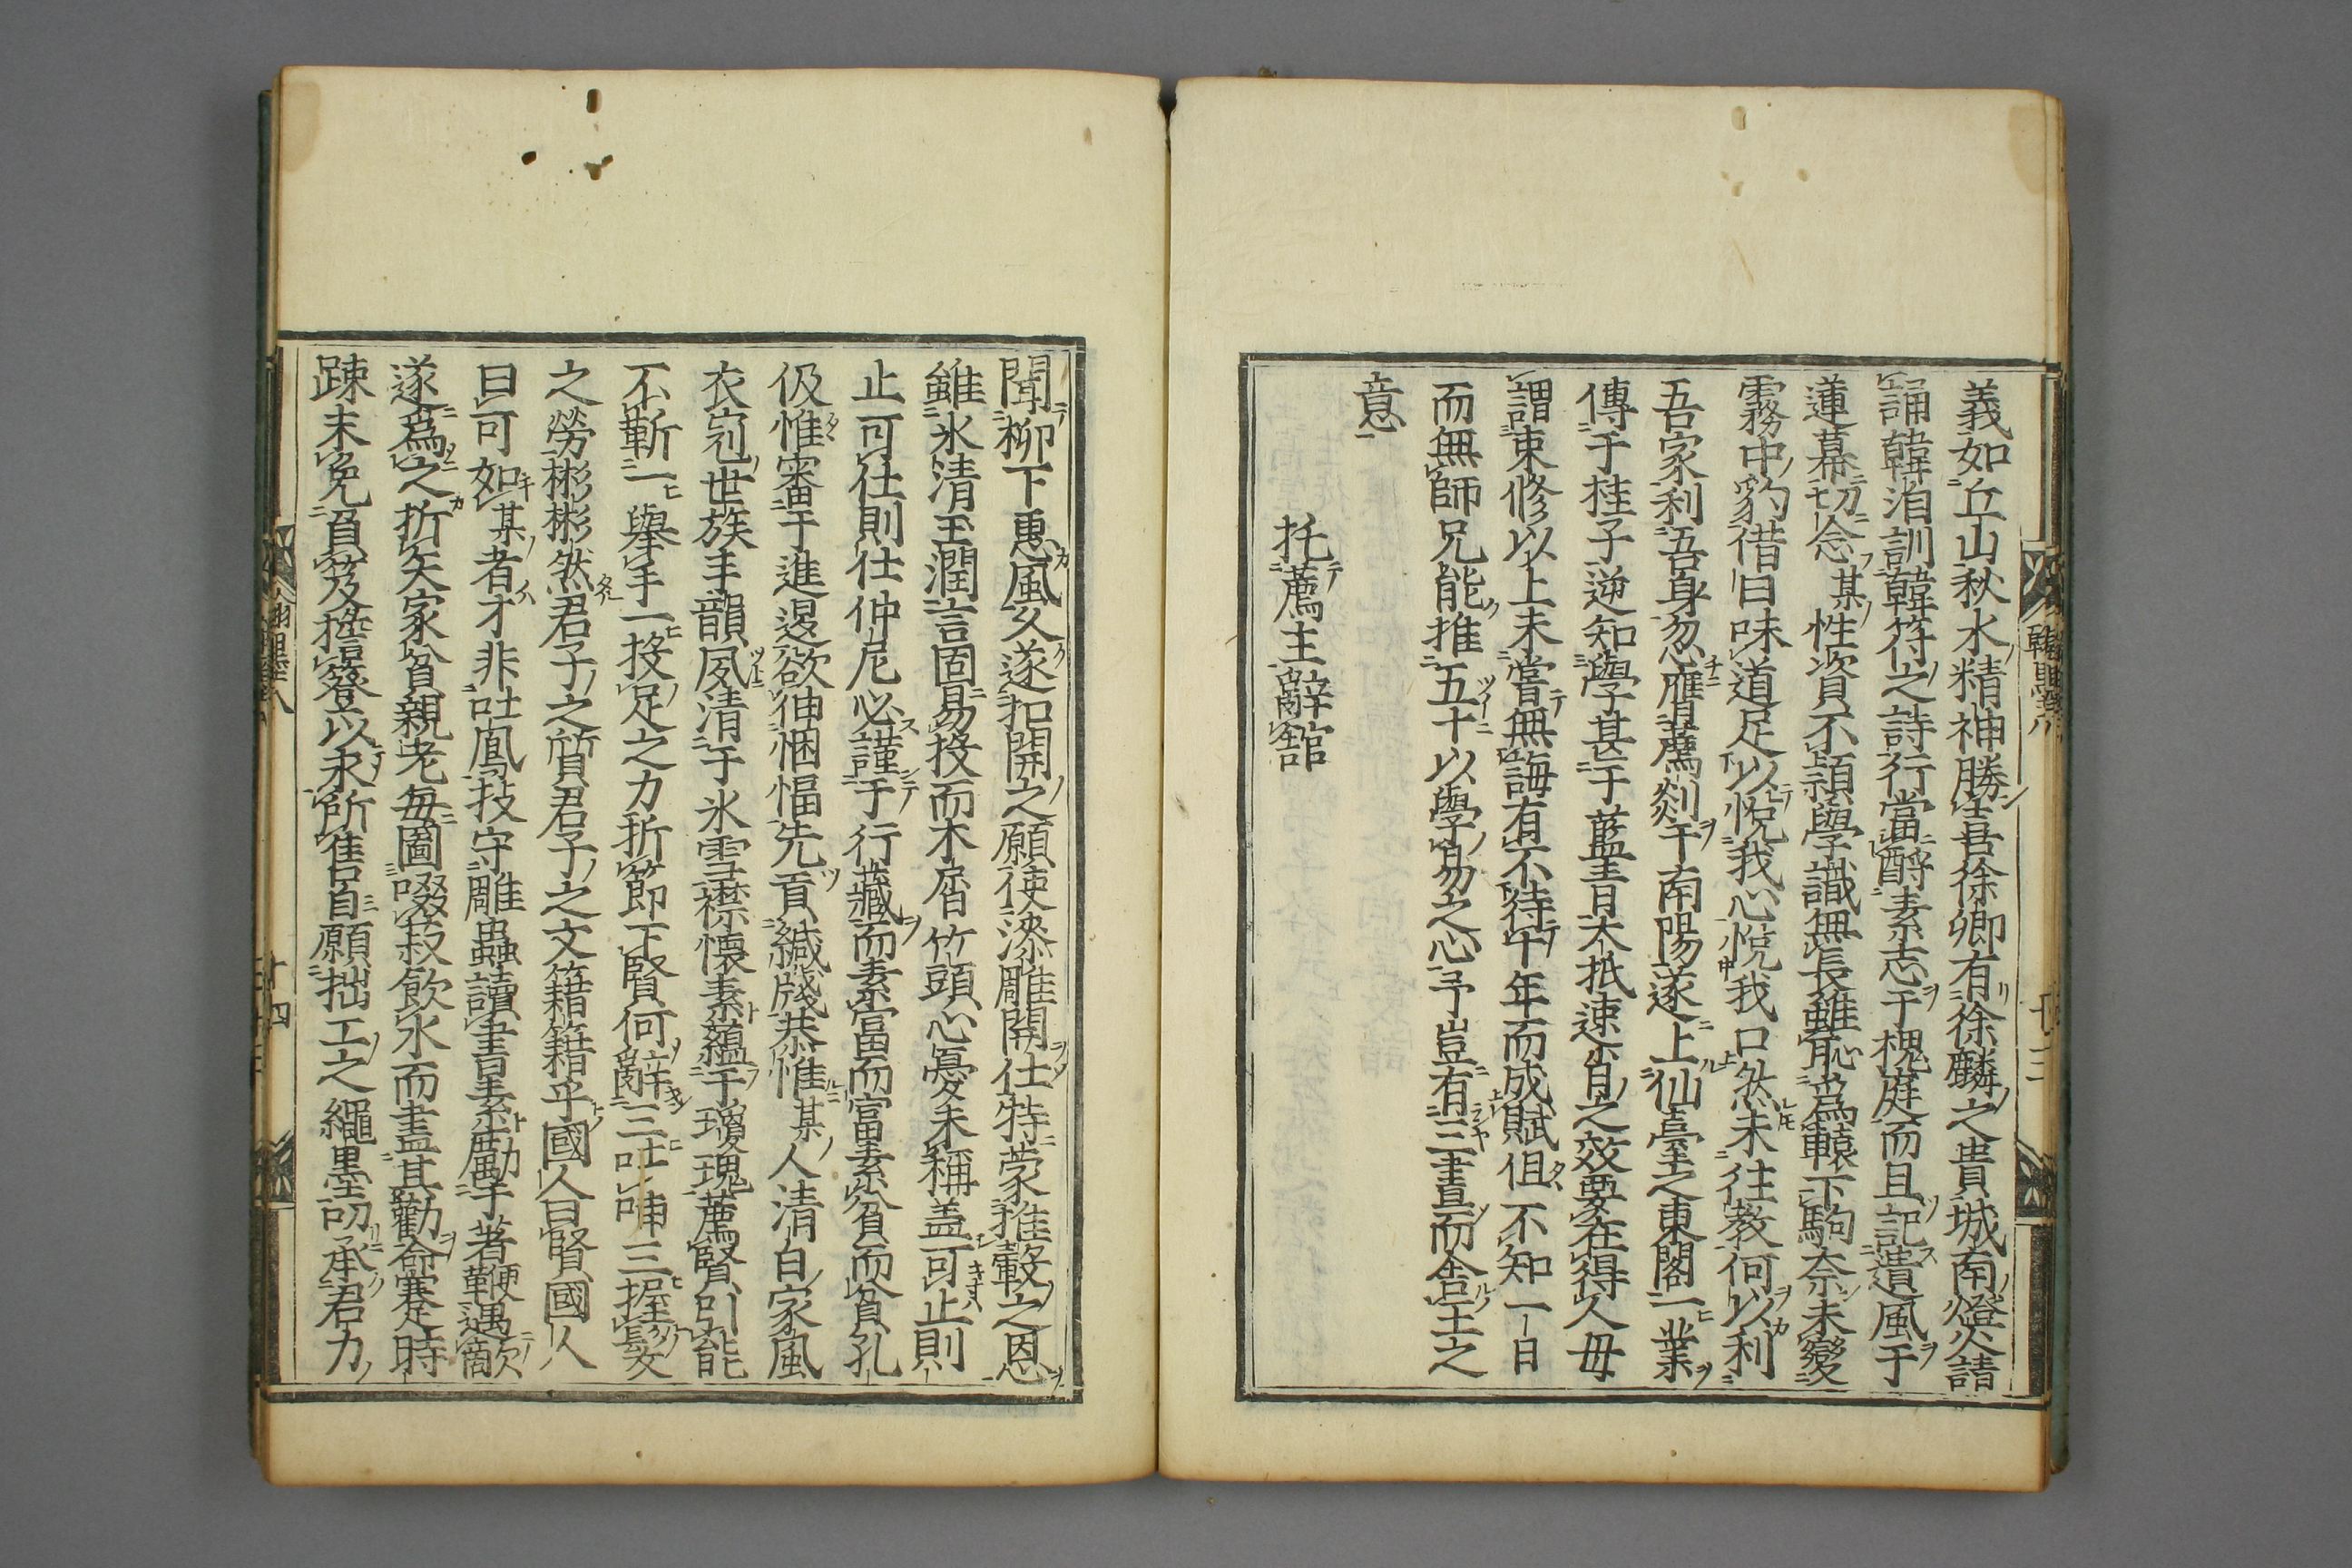 義如丘山秋水精神勝吾徐卿有徐麟之貴城南燈火請
誦韓洎訓韓符之詩行當酹素志于槐庭而且記遺風于
蓮幕切念某性資不頴學識無長雖恥爲轅下駒奈未變
霧中豹借曰味道足以悅我心悅我口然未往教何以利
吾家利吾身忽鴈薦剡于南陽遂上仙臺之東閣一業
傳于桂子逆知學甚于藍青日大抵速肖之效要在得人毋
謂束修以上未嘗無誨有不待十年而成賦但不知一日
而無師兄能推五十以學易之心予豈有三晝而舍王之
意
托薦主辭舘
聞柳下惠風久遂扣開之願使漆雕開仕特蒙推轂之恩
雖氷清玉潤言固易投而木屑竹頭心憂未稱盖可止則
止可仕則仕仲尼必謹于行藏而素富而富素貧而貧孔
伋惟審于進退欲伸悃愊先貢緘牋恭惟某人清白家風
衣冠世族丰韻夙清于氷雪襟懷素蘊于瓊瑰薦賢引能
不靳一舉手一投足之力折節下賢何辭三吐哺三握髮
之勞彬彬然君子之質君子之文籍籍乎國人曰賢國人
曰可如某者才非吐鳳技守雕蟲讀書素勵于著鞭遇歉
遂爲之折矢家貧親老每圖啜菽飲水而盡其歡命蹇時
踈未免負笈擔簦以求所售自願拙工之繩墨叨承君力